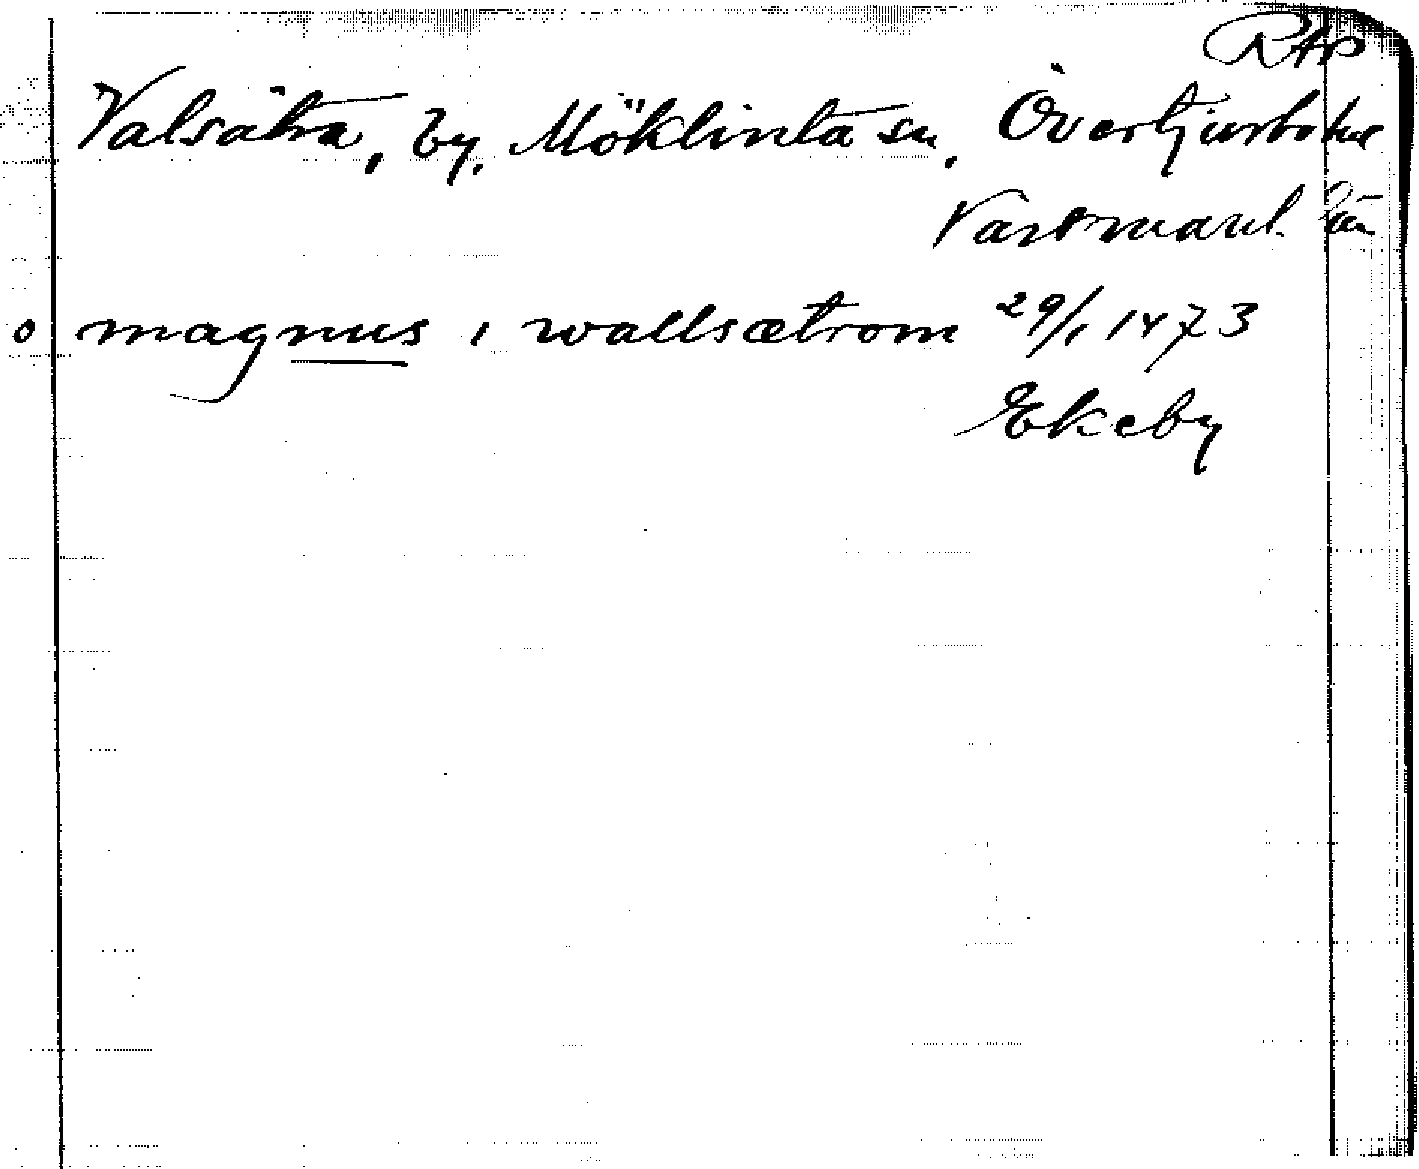 RAP
Valsätra, by, Möklinta sn, Övertjurbo hd
Västmanl. län
o magnus i wallsætrom 29/1 1473
Ekeby